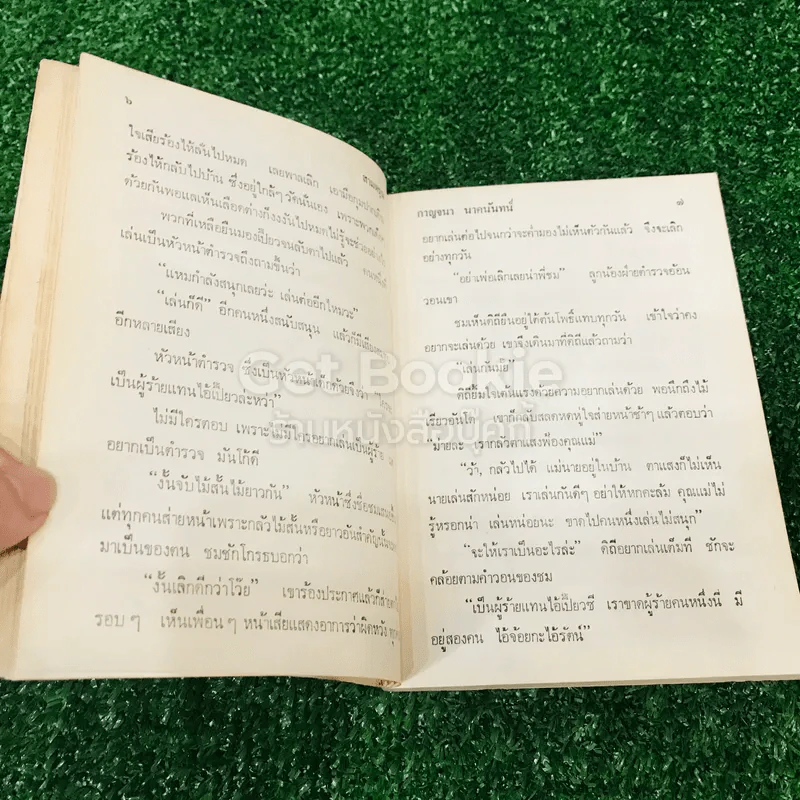 ๖
ใจเสียร้องไห้ลั่นไปหมด เลยพาลเลิก เอามือกุมปาก
ร้องไห้กลับไปบ้าน ซึ่งอยู่ใกล้ๆ วัดนั่นเอง เพราะพวก
ด้วยกันพอแลเห็นเลือดต่างก็งงงันไปหมดไม่รู้จะช่วย
พวกที่เหลือยืนมองเปี๊ยวจนลับตาไปแล้ว
เล่นเป็นหัวหน้าตำรวจถึงถามขึ้นว่า
“แหมกำลังสนุกเลยว่ะ เล่นต่ออีกไหมวะ”
“เล่นก็ดี” อีกคนหนึ่งสนับสนุน แล้วก็มีเสียง
อีกหลายเสียง
หัวหน้าตำรวจ ซึ่งเป็นหัวหน้าเด็กด้วยจึงว่า
เป็นผู้ร้ายแทนไอ้เปี๊ยวละหว่า”
ไม่มีใครตอบ เพราะไม่มีใครอยากเล่นเป็นผู้ร้าย
อยากเป็นตำรวจ มันโก้ดี
“งั้นจับไม้สั้นไม้ยาวกัน” หัวหน้าซึ่งชื่อชม
แต่ทุกคนส่ายหน้าเพราะกลัวไม้สั้นหรือยาวอันสำคัญนั้น
มาเป็นของตน ชมชักโกรธบอกว่า
“งั้นเลิกดีกว่าโว้ย” เขาร้องประกาศแล้วก็
รอบๆ เห็นเพื่อนๆ หน้าเสียแสดงอาการว่าผิดหวัง
กาญจนา นาคนันทน์ ๗
อยากเล่นต่อไปจนกว่าจะค่ำมองไม่เห็นตัวกันแล้ว จึงจะเลิก
อย่างทุกวัน
“อย่าเพ่อเลิกเลยน่าพี่ชม” ลูกน้องฝ่ายตำรวจอ้อน
วอนเขา
ชมเห็นดิถียืนอยู่ใต้ต้นโพธิ์แทบทุกวัน เข้าใจว่าคง
อยากจะเล่นด้วย เขาจึงเดินมาที่ดิถีแล้วถามว่า
“เล่นกันมั้ย”
ดิถียิ้มใจเต้นแรงด้วยความอยากเล่นด้วย พอนึกถึงไม้
เรียวอันโต เขาก็กลับสลดหดหู่ใจส่ายหน้าช้าๆ แล้วตอบว่า
“ม่ายละ เรากลัวตาแสงฟ้องคุณแม่”
“ว้า, กลัวไปได้ แม่นายอยู่ในบ้าน ตาแสงก็ไม่เห็น
นายเล่นสักหน่อย เราเล่นกันดีๆ อย่าให้หกคะล้ม คุณแม่ไม่
รู้หรอกน่า เล่นหน่อยนะ ขาดไปคนหนึ่งเล่นไม่สนุก”
“จะให้เราเป็นอะไรล่ะ” ดิถีอยากเล่นเต็มที่ ชักจะ
คล้อยตามคำวอนของชม
“เป็นผู้ร้ายแทนไอ้เปี๊ยวซี เราขาดผู้ร้ายคนหนึ่งนี่ มี
อยู่สองคน ไอ้จ้อยกะไอ้รัตน์”
Got Bookie
ร้านหนังสือบุ๊คกี้